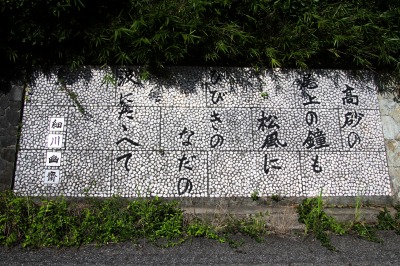 高砂の
尾上の鐘も
松風に
ひびきの
なだの
波にたへて
細川幽齋